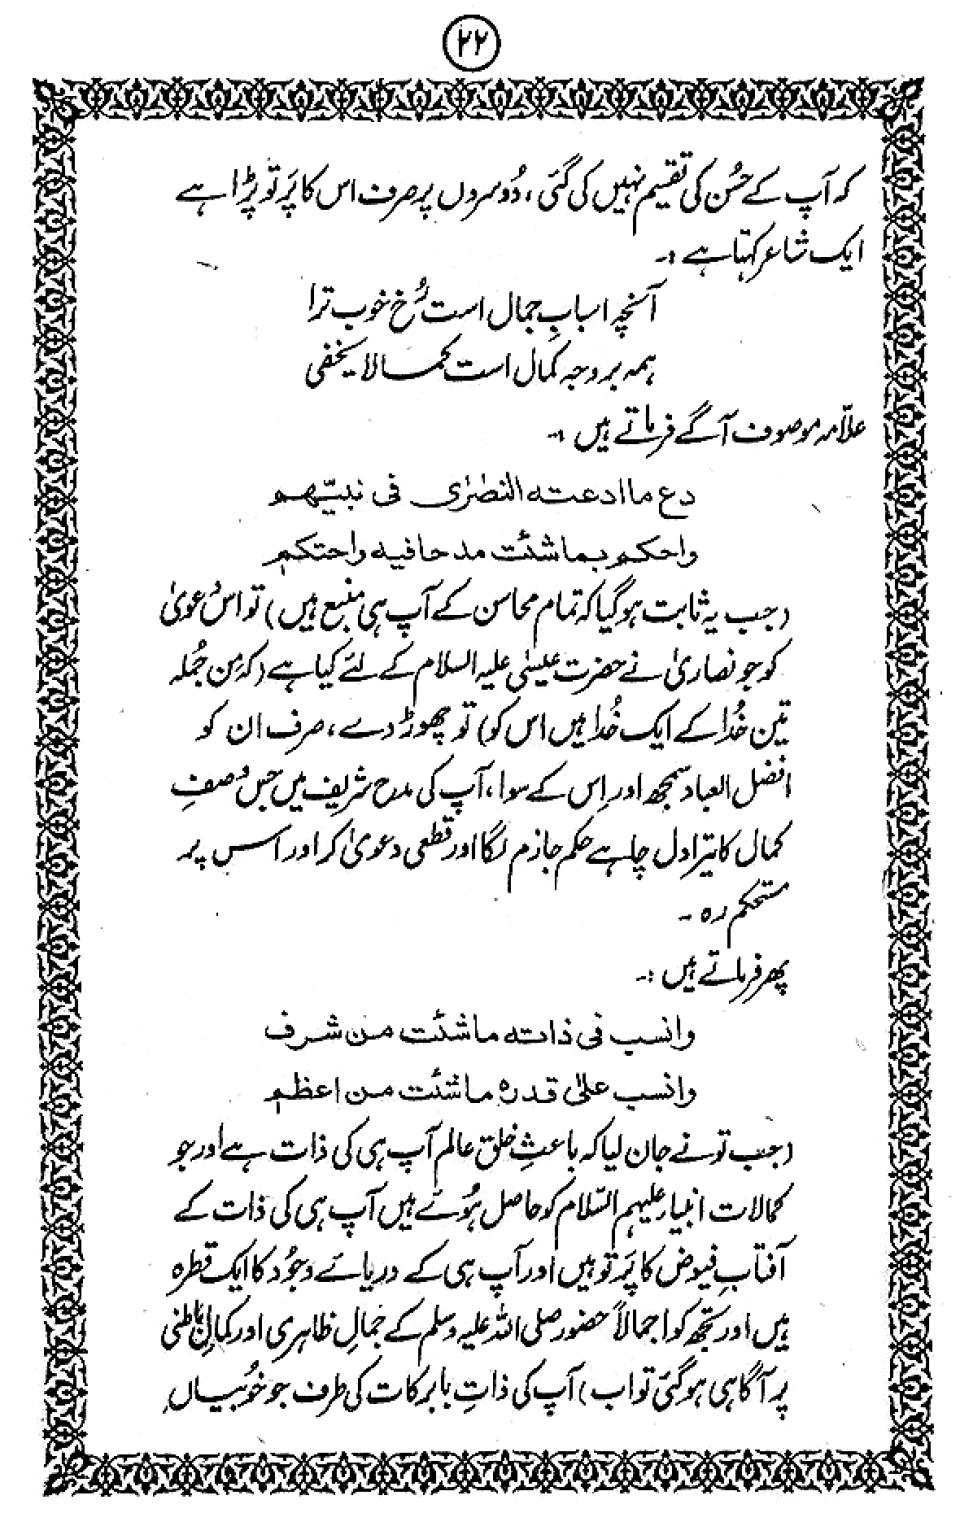 ۲۲
کہ آپ کے حُسن کی تقسیم نہیں کی گئی، دُوسروں پر صرف اس کا پَرتو پڑا ہے
ایک شاعر کہتا ہے :۔
آنچہ اسبابِ جمال است رُخِ خوب ترا
ہمہ بر وجہ کمال است کمالا یخفی
علاّمہ موصوف آگے فرماتے ہیں ۱۔
دع ما ادعته النصٰرٰی فی نبیّهم
واحکم بماشئت مدحافیه واحتکم
(جب یہ ثابت ہوگیا کہ تمام محاسن کے آپ ہی منبع ہیں) تو اس دعویٰ
کو جو نصاریٰ نے حضرت عیسیٰ علیہ السلام کے لئے کیا ہے (کہ مِن جُملہ
تین خُدا کے ایک خُدا ہیں اس کو) تو چھوڑ دے، صرف ان کو
افضل العباد سمجھ اور اِس کے سوا، آپ کی مدح شریف میں جس وصفِ
کمال کا تیرا دل چاہے حکم جازم لگا اور قطعی دعویٰ کر اور اس پر
مستحکم رہ ۔
پھر فرماتے ہیں :۔
وانسب فی ذاته ماشئت من شرف
وانسب علیٰ قدره ماشئت من اعظم
(جب تو نے جان لیا کہ باعثِ خلق عالم آپ ہی کی ذات ہے اور جو
کمالات انبیاء علیہم السّلام کو حاصل ہُوئے ہیں آپ ہی کی ذات کے
آفتابِ فیوض کا پَرتو ہیں اور آپ ہی کے دریائے وجُود کا ایک قطرہ
ہیں اور تجھ کو اجمالاً حضور صلی اللہ علیہ وسلم کے جمالِ ظاہری اور کمالِ باطنی
پر آگاہی ہوگئی تو اب) آپ کی ذاتِ بابرکات کی طرف جو خُوبیاں